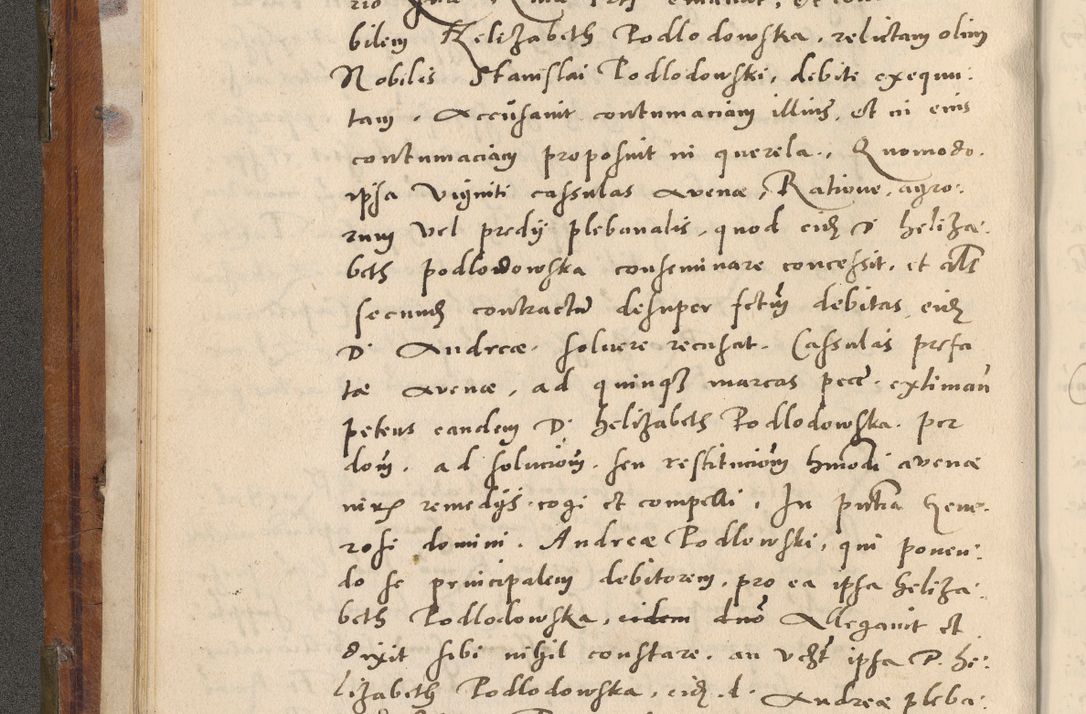 bilem Helizabeth Podlodowska, relictam olim
Nobilis Stanislai Podlodowski, debite exequu:
tam, Accusavit contumaciam illius, et in eius
contumaciam proposuit in querela, Quomodo.
ipsa Viginti cassulas Avenæ, Ratione, agro:
rum vel predij plebanalis, quod eidē D heliza:
beth Podlodowska conseminare concessit, et als
secundū contractū desuper fctūm debitas, eidē
D. Andreæ. soluere recusat. Cassulas præfa
tæ Avenæ, ad quinqȝ marcas pecc. extiman
petens eandem D. helizabeth Podlodowska. per
dom. ad solucioūm. seu restitucioūm hmōdi avenæ
remedijs cogi et compelli, In pntia Gene:
rosi domini. Andreæ Podlowski, qui ponen:
do se principalem debitorem, pro ea ipsa heliza:
beth Podlodowska, eidem dnō Allegavit et
dixit sibi nihil constare, an ipsa D. he:
lizabeth Podlodowska, eidē. d. Andreæ pleba: